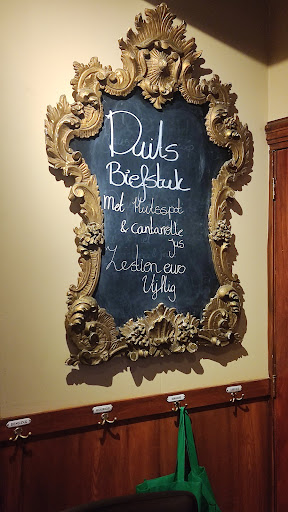 Duits
Biefstuk
Met Hutespot
& cantarelle
jus
Zestien euro
Vijftig